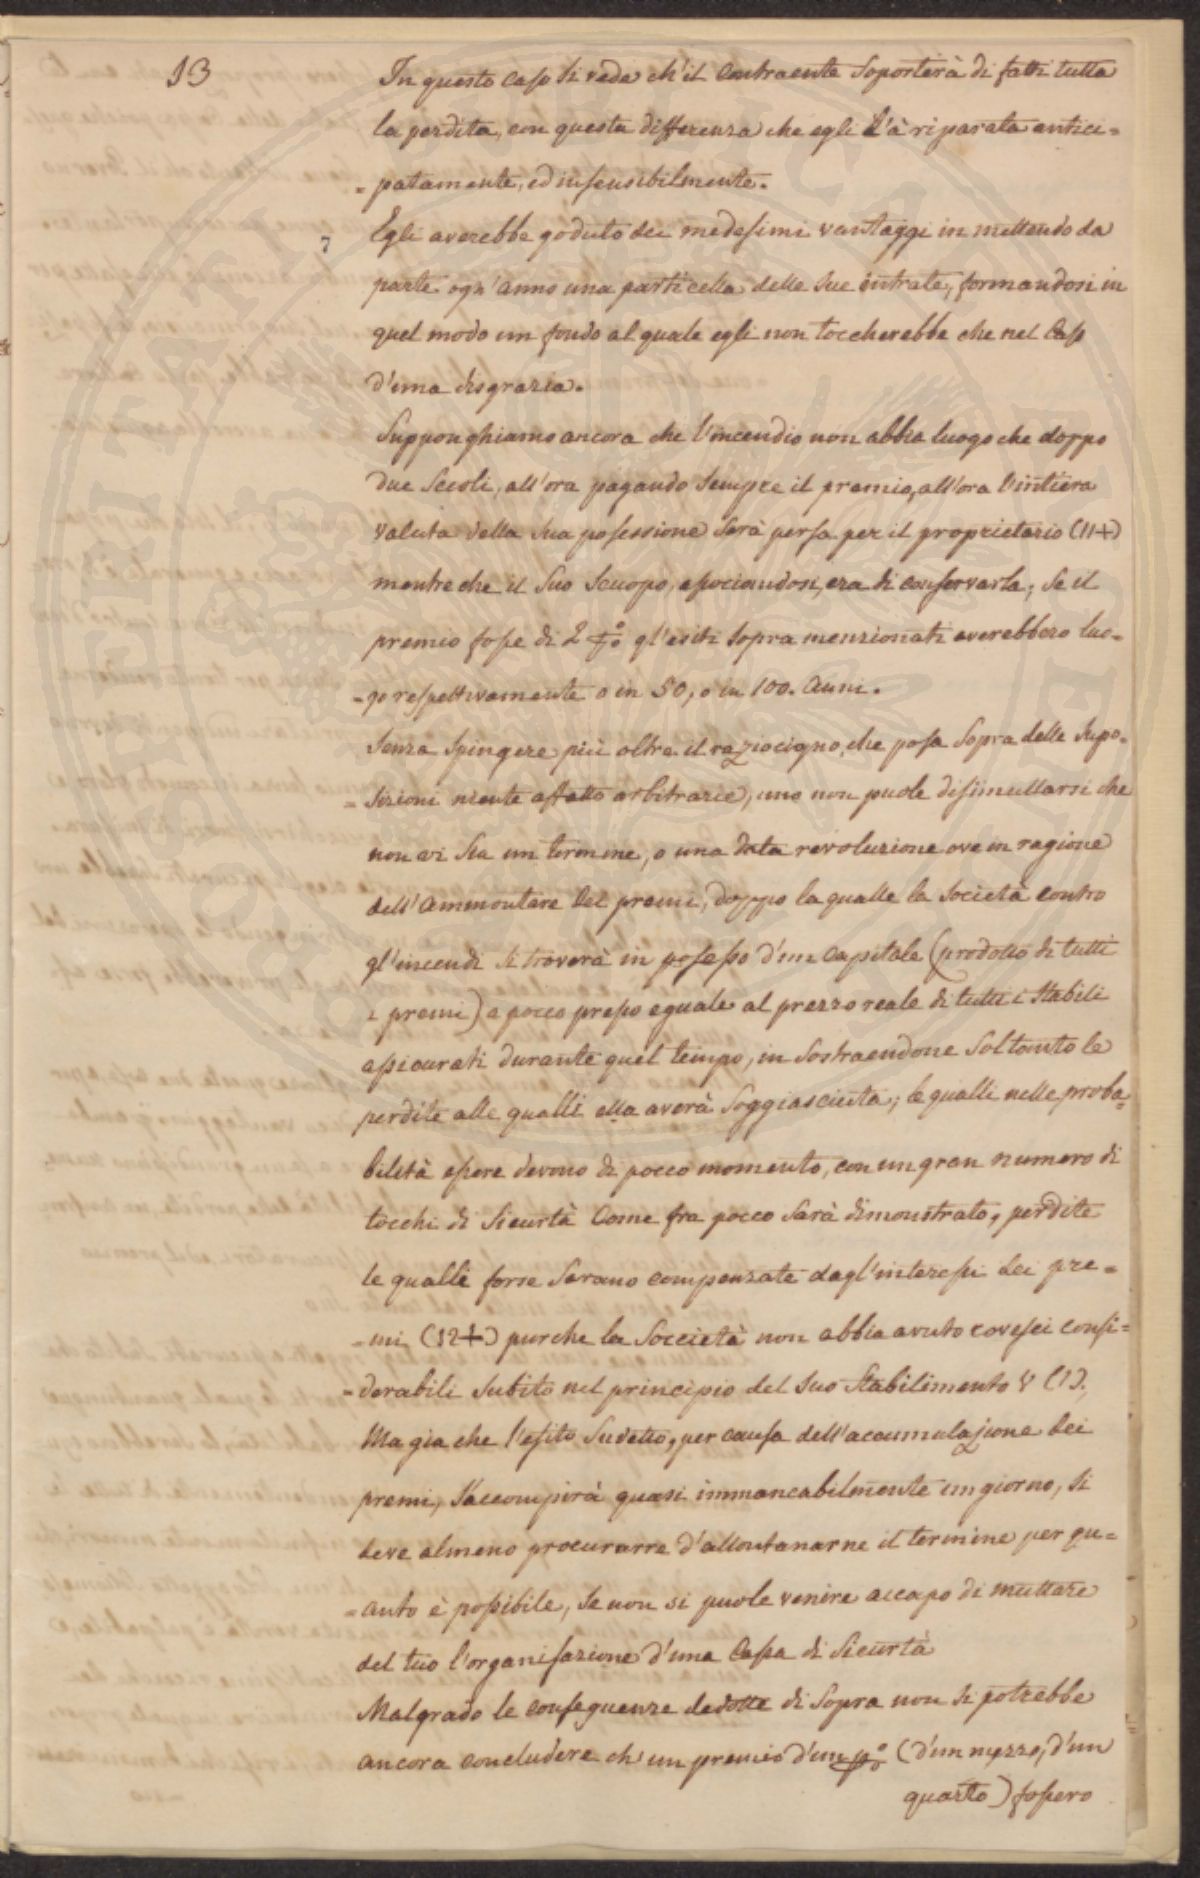 13
In questo caso si vede ch'il contraente soporterà di fatti tutta
la perdita, con questa differenza che egli l'à riparata antici=
=patamente, ed insensibilmente.
7
Egli averebbe goduto dei medesimi vantaggi in mettendo da
parte ogn'anno una particella delle sue intrate, formandosi in
quel modo un fondo al quale egli non toccherebbe che nel caso
d'una disgrazia.
Supponghiamo ancora che l'incendio non abbia luogo che doppo
due secoli, all'ora pagando sempre il premio, all'ora l'intiera
valuta della sua possessione sarà persa per il proprietario (11+)
mentre che il suo scuopo, associandosi, era di conservarla; se il
premio fosse di 2 p% gl'esiti sopra menzionati averebbero luo=
=go respettivamente o in 50, o in 100. anni.
Senza spingere più oltre il raziocigno, che posa sopra delle supo=
=sizioni niente affatto arbitrarie, uno non puole disimullarsi che
non vi sia un termine, o una data revoluzione ove in ragione
dell'ammontare del premi, doppo la qualle la società contro
gl'incendi si troverà in possesso d'un capitale (prodotto di tutti
i premi) a pocco presso eguale al prezzo reale di tutti i stabili
assicurati durante quel tempo, in sostraendone soltanto le
perdite alle qualli ella averà soggiasciuta; le qualli nelle proba=
bilità essere devono di pocco momento, con un gran numero di
tocchi di sicurtà come fra pocco sarà dimonstrato, perdite
le qualli forse sarano compensate dagl'interessi dei pre=
=mi (12+) purche la soccietà non abbia avuto rovesci consi=
=derabili subito nel principio del suo stabilimento V (1).
Ma gia che l'esito sudetto, per causa dell'accumulazione dei
premi, s'accompirà quasi immancabilmente un giorno, si
deve almeno procurarre d'allontanarne il termine per qu=
=anto è possibile, se non si puole venire accapo di muttare
del tuo l'organisazione d'una cassa di sicurtà
Malgrado le conseguenze dedotte di sopra non si potrebbe
ancora concludere ch'un premio d'un p% (d'un mezzo, d'un
quarto) fossero